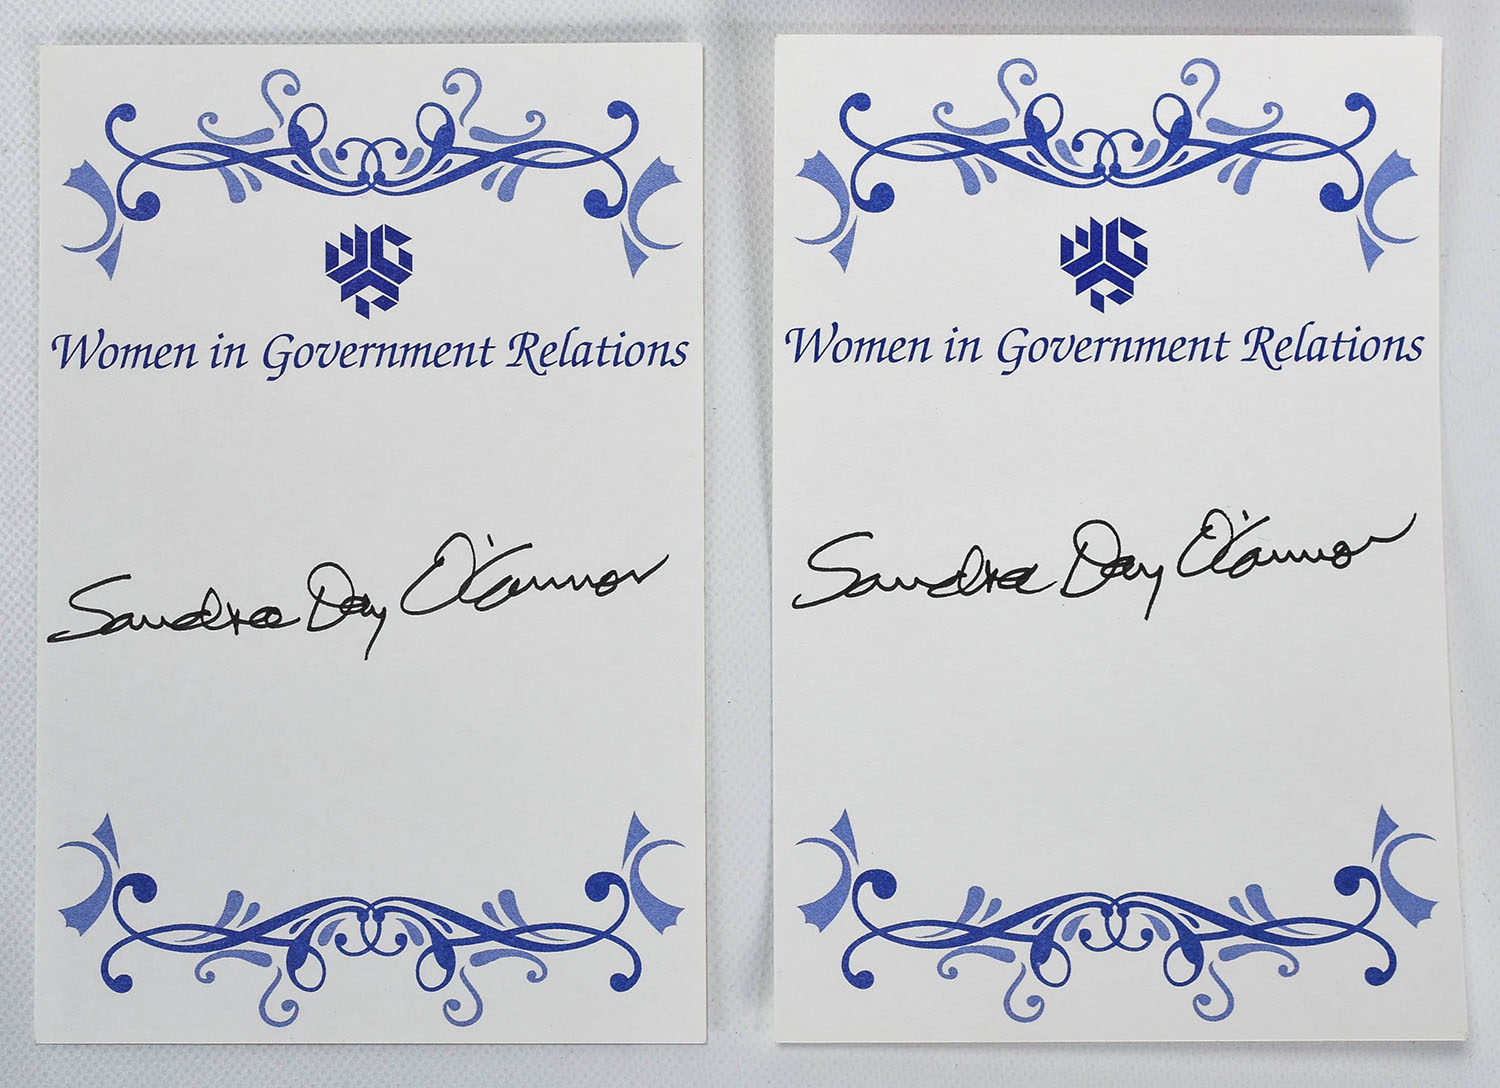 WGR
Women in Government Relations
Sandra Day O'Connor
WGR
Women in Government Relations
Sandra Day O'Connor